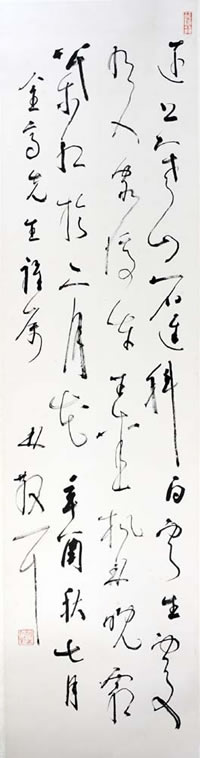 遠上寒山石逕斜白雲生處
有人家停車坐愛楓林晚霜
葉紅於二月花 辛酉秋七月
先生雅屬 林散耳